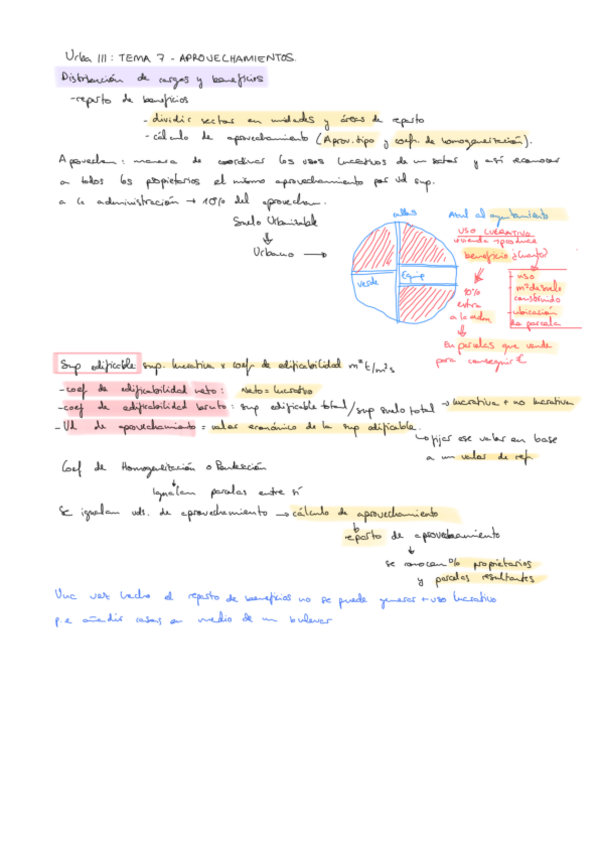 Urba III: TEMA 7 - APROVECHAMIENTOS.
Distribución de cargas y beneficios
-reparto de beneficios
- dividir sector en unidades y áreas de reparto
- cálculo de aprovechamiento (Aprov. tipo y coefs. de homogeneización).
Aprovecham: manera de coordinar los usos lucrativos de un sector y así reconocer
a todos los propietarios el mismo aprovechamiento por ud sup.
a la administración → 10% del aprovecham.
Suelo Urbanizable
Urbano →
calles
verde
Equip
al ayuntamiento
USO LUCRATIVO
vivienda → produce
beneficio ¿Cuanto?
10%
extra
a la admon
- uso
m² de suelo
construido
- ubicación
de parcela
En parcelas que vende
para conseguir €
Sup edificable sup. lucrativa x coef. de edificabilidad m²t/m²s
-coef de edificabilidad neto: Neto = lucrativo
-coef de edificabilidad bruto: sup edificable total/sup suelo total → lucrativa + no lucrativa
- Ud de aprovechamiento = valor económico de la sup edificable.
↳ fijar ese valor en base
a un valor de ref.
Coef de Homogeneización o Ponderación
Igualan parcelas entre sí
Se igualan uds. de aprovechamiento → cálculo de aprovechamiento
reparto de aprovechamiento
se conocen % propietarios
y parcelas resultantes
Una vez hecho el reparto de beneficios no se puede generar + uso lucrativo
p.e añadir casas en medio de un bulevar